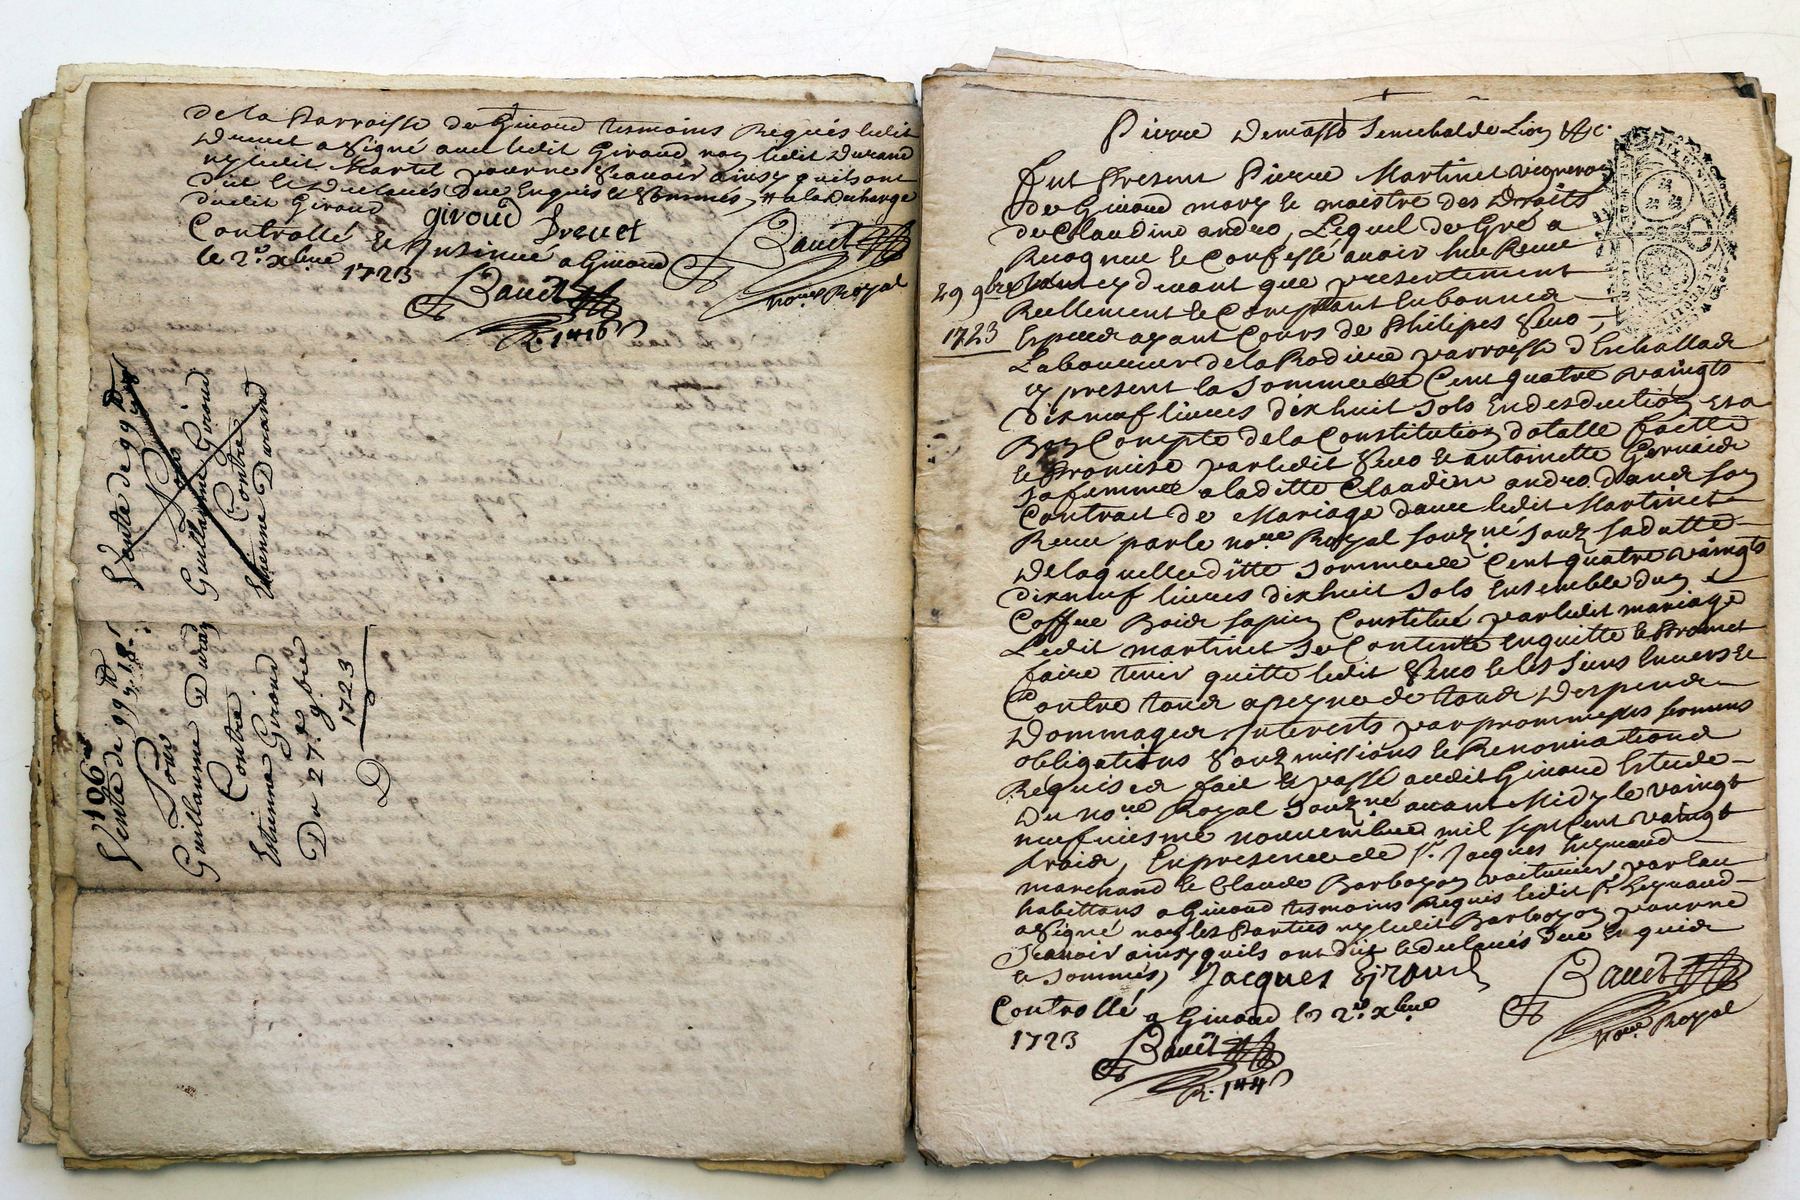 de la Parroisse de Givord tesmoins Requis ledit
a signé avec ledit Giroud non ledit Durand
ny ledit Martel pour ne scavoir ainsy quils ont
dit et declarés Due Enquis et sommés, a la decharge
dudit Giroud
giroud Brevet
Controllé et Insinué a Givord
le 2e. xbre 1723
Bavet
no.re Royal
Bavet
Vente de 99 lt
Pour
Guillaume Giroud
Contre
Etienne Durand
106e
Vente de 99 lt 18 s
Pour
Guillaume Durand
Contre
Estienne Giroud
Du 27.e 9bre
1723
Pierre Demasso Senechal de Lion &c.
29 9bre
1723
Fut Present Pierre Martinet vigneron
de Givord mary et maistre des Droits
de Claudine andro, Lequel de Gré a
Recognu et Confessé avoir heu Receu
tant cy devant que presentement
Reellement et Comptant En bonnes
Especes ayant Cours de Philipes
Laboureur de la Rodiere parroisse d'Eschallas
cy present la somme de Cent quatre vaingts
dixneuf livres dixhuit sols En desduction Et a
Bon Compte de la Constitution dotalle faitte
et Promise par ledit et antoinette
sa femme a la ditte Claudine andro dans son
Contract de Mariage d'avec ledit Martinet
Receu par le no.re Royal souzné souz sa datte
De laquelle ditte somme de Cent quatre vaingts
dixneuf livres dixhuit sols Ensemble dun
Coffre Bois sapin Constitué par ledit mariage
Ledit martinet se Contente En quitte et Promet
faire tenir quitte ledit et les siens Envers et
Contre tous a peyne de tous Despens
Dommages Interests par promesses sermens
obligations souzmissions et Renonciations
Requises fait et passé audit Givord Estude
Du no.re Royal souzné avant Midy le vaingt
neufviesme novembre mil sept cent vaingt
trois, En presence de sr. Jacques
marchand et Claude Barboyon voiturier par Eau
habittans a Givord tesmoins Requis ledit sr.
a signé non les Parties ny ledit Barboyon pour ne
Scavoir ainsy quils ont dit et declarés Due Enquis
et sommés, Jacques
Controllé a Givord le 2e. xbre
1723
Bavet
no.re Royal
Bavet